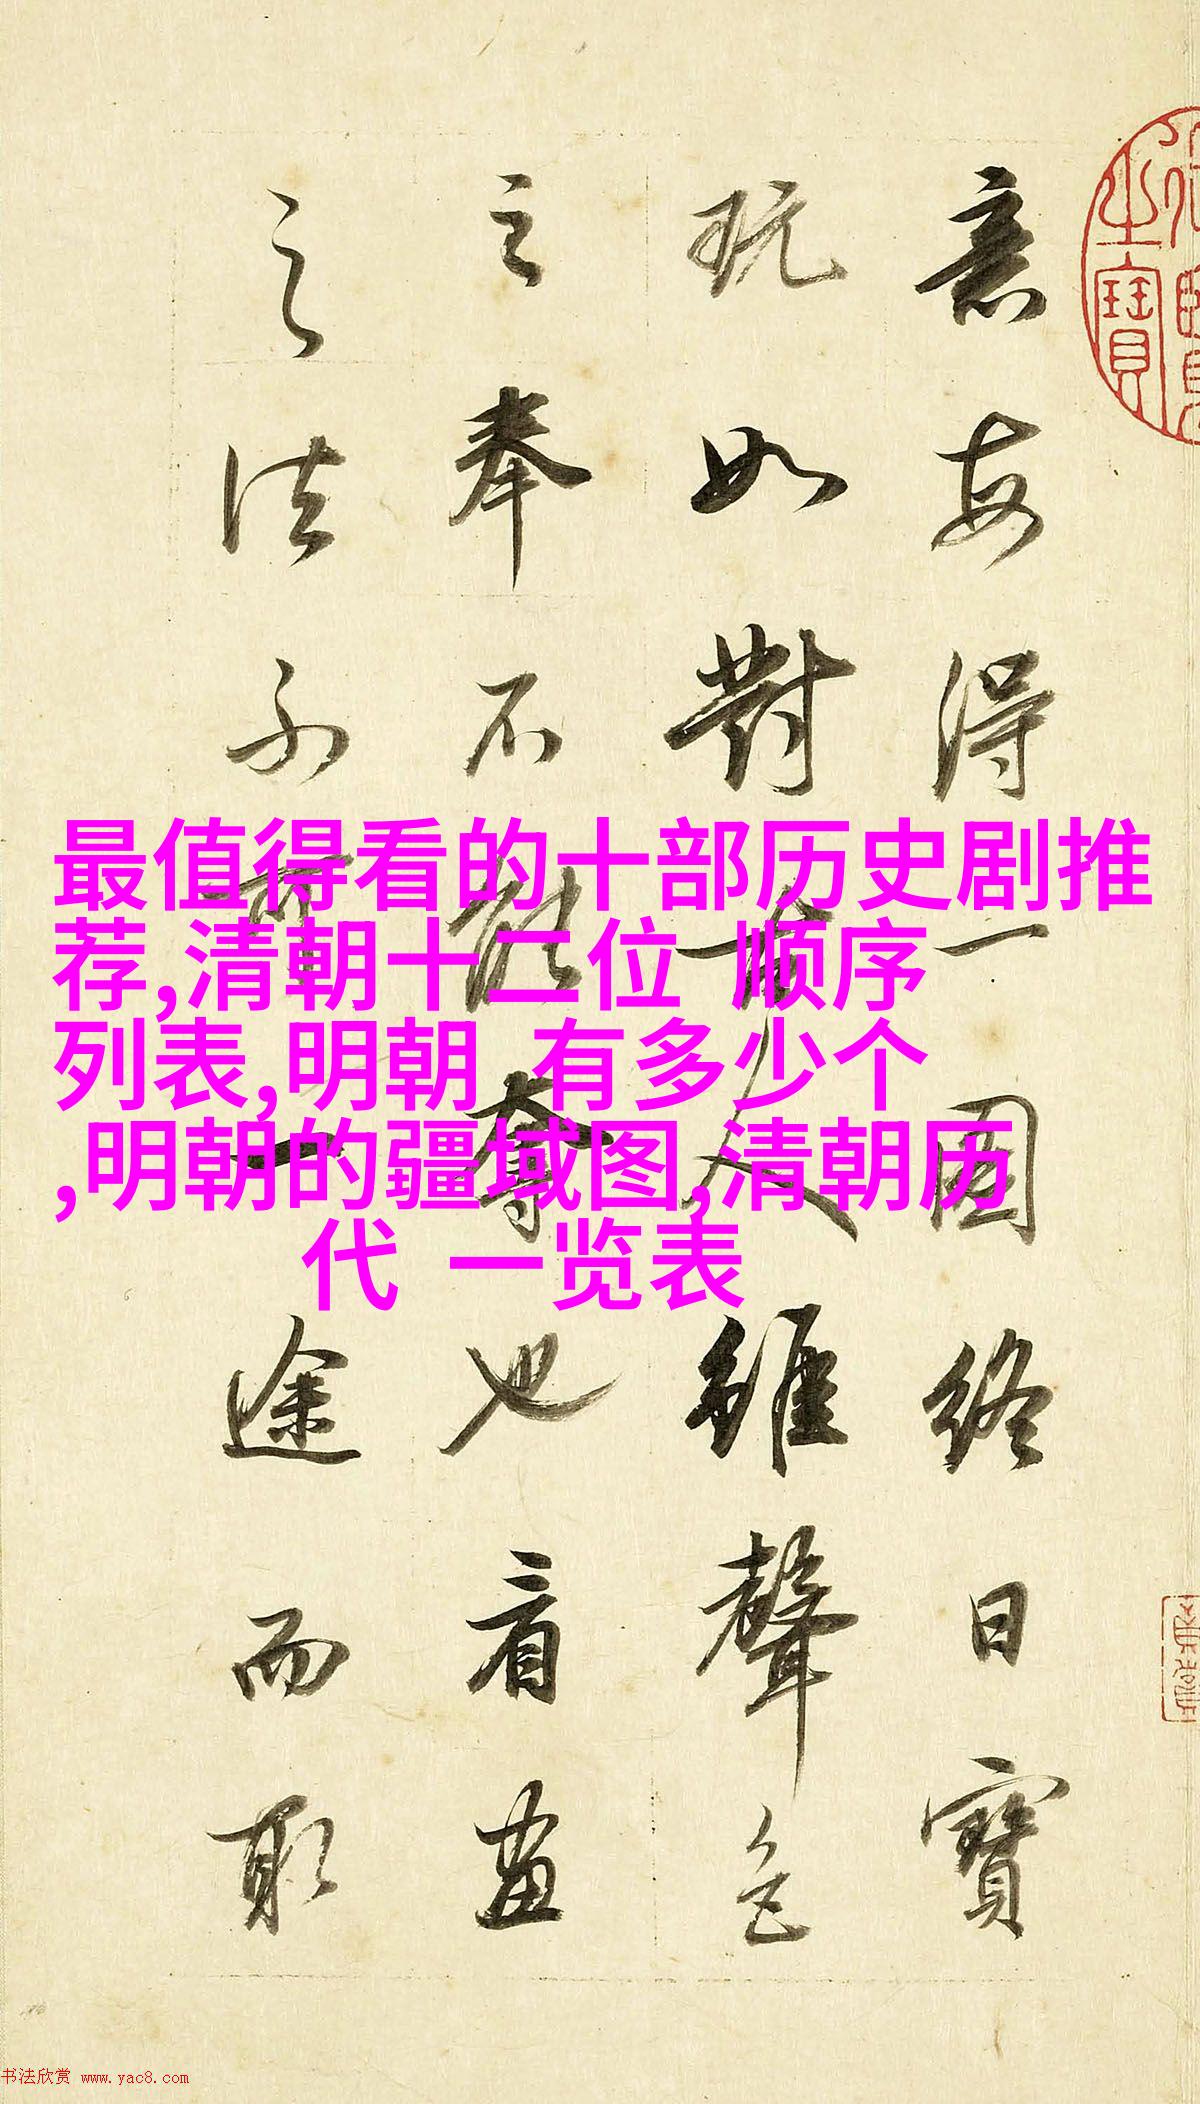 意每得一圖終日寶
玩如對古人雖聲色
之奉不能奪也看畫
之法不可一途而取
最值得看的十部历史剧推
荐,清朝十二位 顺序
列表,明朝 有多少个
,明朝的疆域图,清朝历
代 一览表
之寶
书法欣赏 www.yac8.com